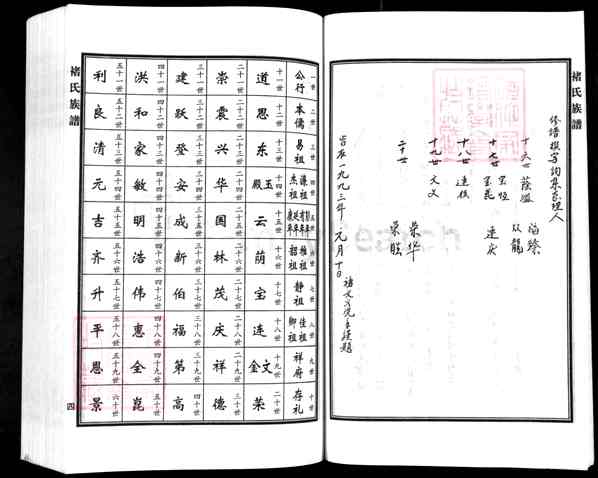 褚氏族譜
修譜撰写詢集整理人
十六世
十七世
十八世 连
十九世 文义
二十世 荣华
荣
旹在一九九三年元月十日
褚氏族譜
一世 公行
二世 本儒
三世 易祖
四世 谦祖 杰祖
五世
六世 雅祖 韶祖
七世 静祖
八世 佳祖 卿祖
九世 祥府
十世 存礼
十一世 道
十二世 思
十三世 东
十四世 玉殿
十五世 云
十六世 荫
十七世 宝
十八世 连
十九世 文金
二十世 荣
二十一世 崇
二十二世 震
二十三世 兴
二十四世 华
二十五世 国
二十六世 林
二十七世 茂
二十八世 庆
二十九世 祥
三十世 德
三十一世 建
三十二世 跃
三十三世 登
三十四世 安
三十五世 成
三十六世 新
三十七世 伯
三十八世 福
三十九世 第
四十世 高
四十一世 洪
四十二世 和
四十三世 家
四十四世 敏
四十五世 明
四十六世 浩
四十七世 伟
四十八世 惠
四十九世 全
五十世 昆
五十一世 利
五十二世 良
五十三世 清
五十四世 元
五十五世 吉
五十六世 齐
五十七世 升
五十八世 平
五十九世 恩
六十世 景
四